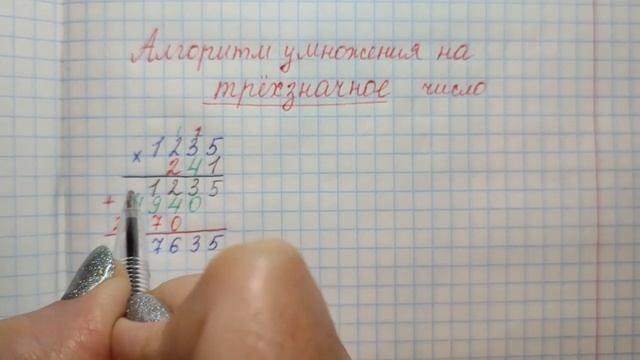 Алгоритм умножения на
трёхзначное число
1 1
× 1235
241
1235
+ 4940
2 70
7635